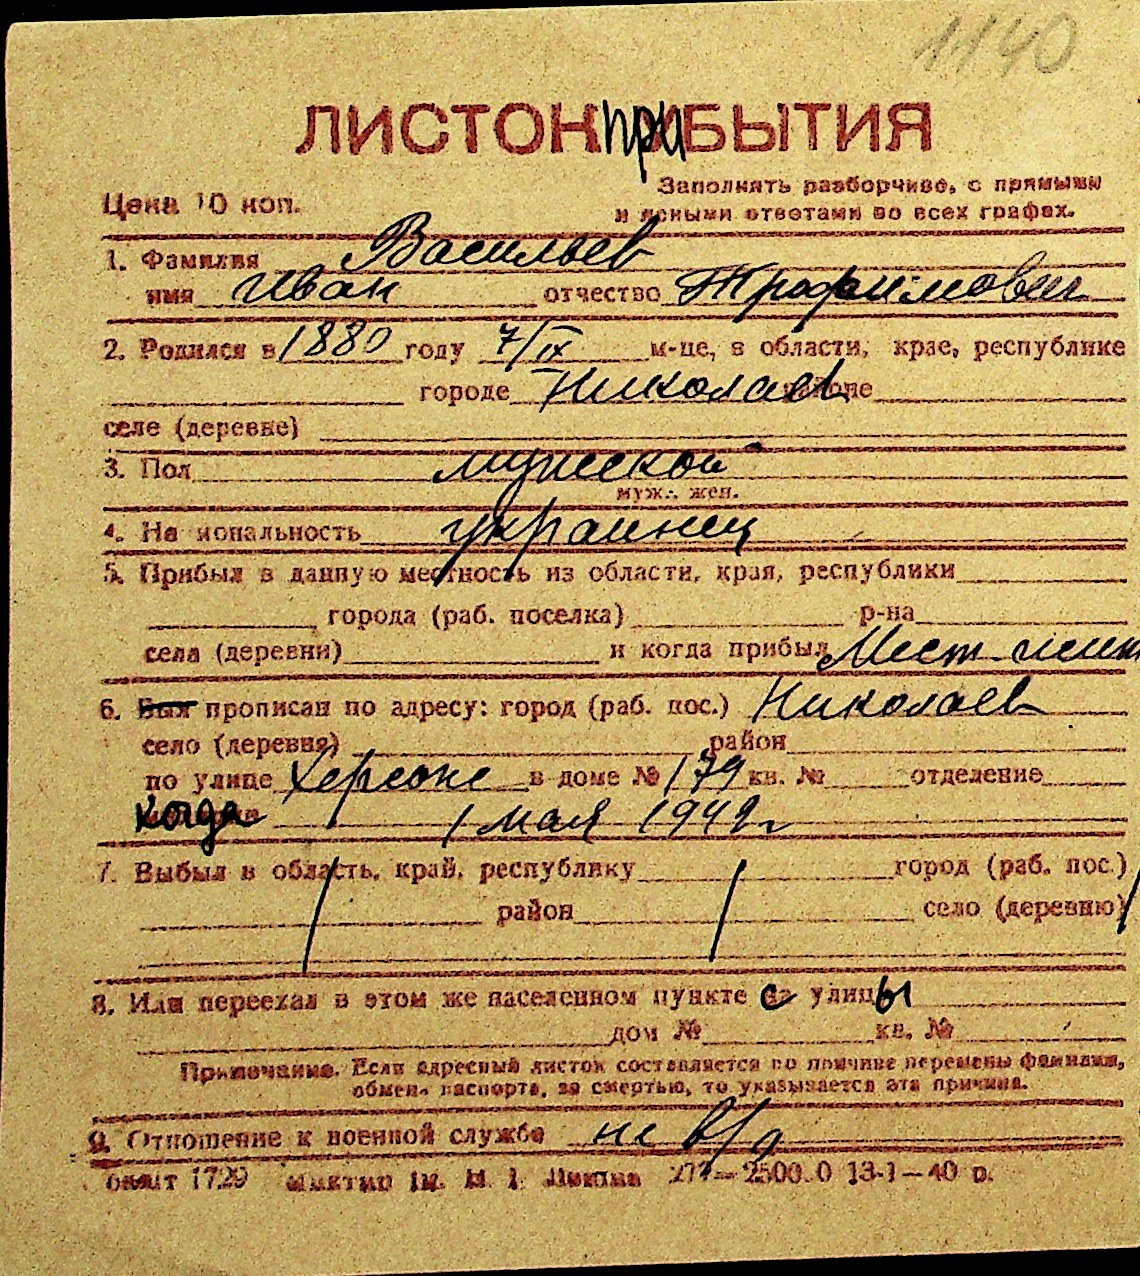 1140
ЛИСТОК ПРИБЫТИЯ
Цена 10 коп.
Заполнять разборчиво, с прямыми
и ясными ответами во всех графах.
1. Фамилия Васильев
имя Иван отчество Трофимович
2. Родился в 1880 году 7/IX м-це, в области, крае, республике
городе Николаев районе
селе (деревне)
3. Пол мужской
муж., жен.
4. Национальность украинец
5. Прибыл в данную местность из области, края, республики
города (раб. поселка) р-на
села (деревни) и когда прибыл Мест. жит
6. Был прописан по адресу: город (раб. пос.) Николаев
село (деревня) район
по улице Херсонс в доме № 179 кв. № отделение
когда 1 мая 1949 г
7. Выбыл в область, край, республику город (раб. пос.)
район село (деревню)
8. Или переехал в этом же населенном пункте с улицы
дом № кв. №
Примечание. Если адресный листок составляется по причине перемены фамилии,
обмена паспорта, за смертью, то указывается эта причина.
9. Отношение к военной службе не в/о
1729 ім. 277—2500.0 13-1—40 р.